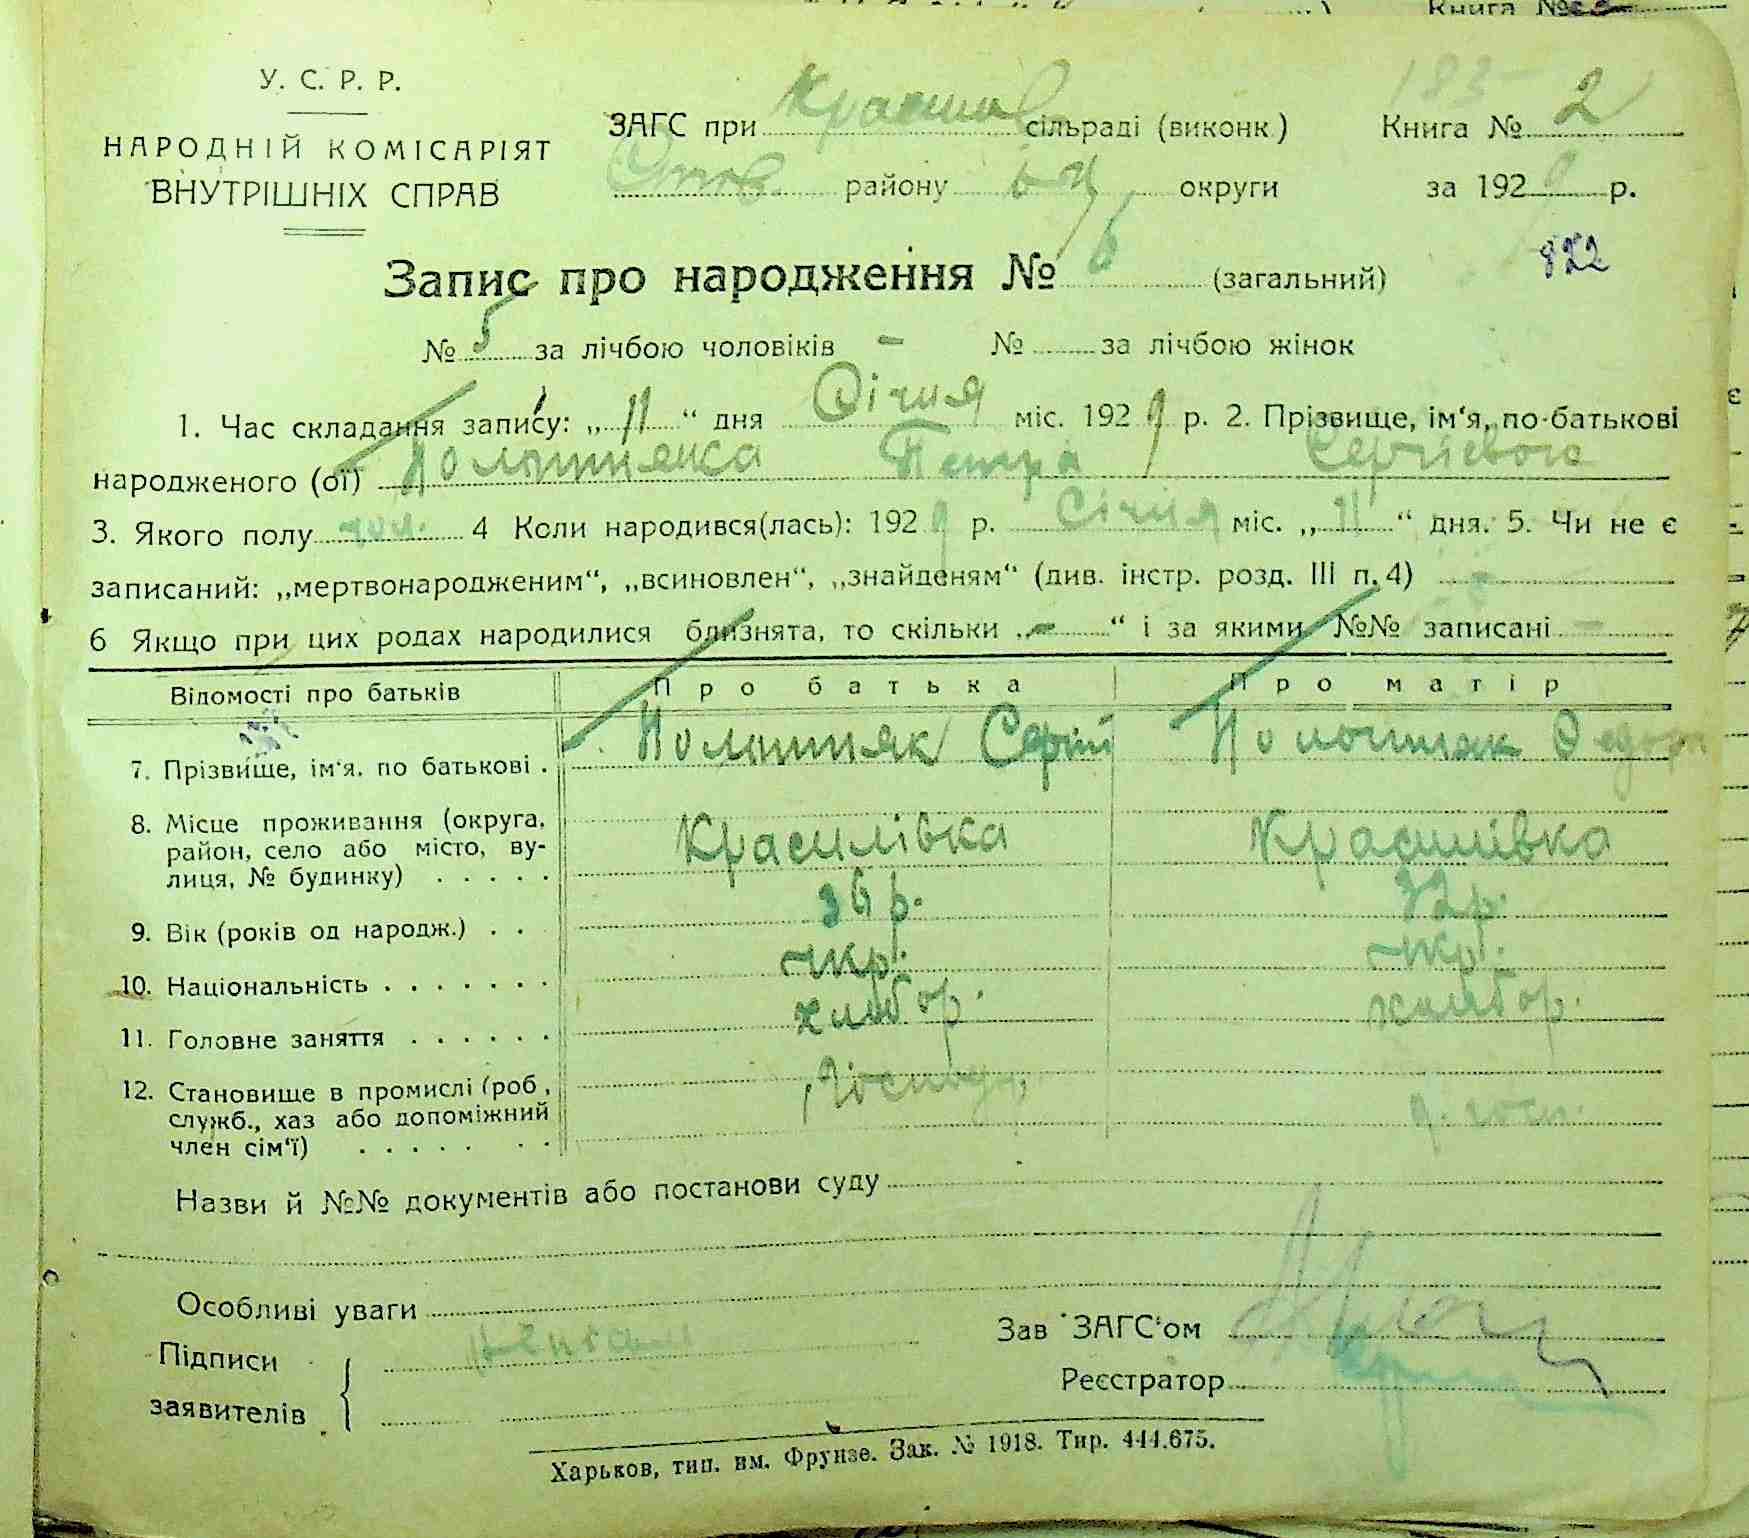 Книга №
У. С. Р. Р.
НАРОДНІЙ КОМІСАРІЯТ
ВНУТРІШНІХ СПРАВ
ЗАГС при сільраді (виконк.) Книга № 2
району округи за 1929 р.
Запис про народження № 6 (загальний) 822
№ 5 за лічбою чоловіків – № за лічбою жінок
1. Час складання запису: „11“ дня Січня міс. 1929 р. 2. Прізвище, ім‘я, по-батькові
народженого (ої) Петра Сергієвого
3. Якого полу чол. 4 Коли народився(лась): 1929 р. Січня міс. „11“ дня. 5. Чи не є
записаний: „мертвонародженим“, „всиновлен“, „знайденям“ (див. інстр. розд. III п. 4)
6 Якщо при цих родах народилися близнята, то скільки „–“ і за якими №№ записані –
Відомості про батьків Про батька Про матір
7. Прізвище, ім‘я, по батькові . Сергій
8. Місце проживання (округа, район, село або місто, вулиця, № будинку) . . . . . Красилівка Красилівка
9. Вік (років од народж.) . . 36 р. 32 р.
10. Національність . . . . . . . укр. укр.
11. Головне заняття . . . . . . хлібор. хлібор.
12. Становище в промислі (роб., служб., хаз або допоміжний член сім‘ї) . . . . . . .
Назви й №№ документів або постанови суду
Особливі уваги
Підписи
заявителів
Зав ЗАГС‘ом
Реєстратор
Харьков, тип. им. Фрунзе. Зак. № 1918. Тир. 444.675.